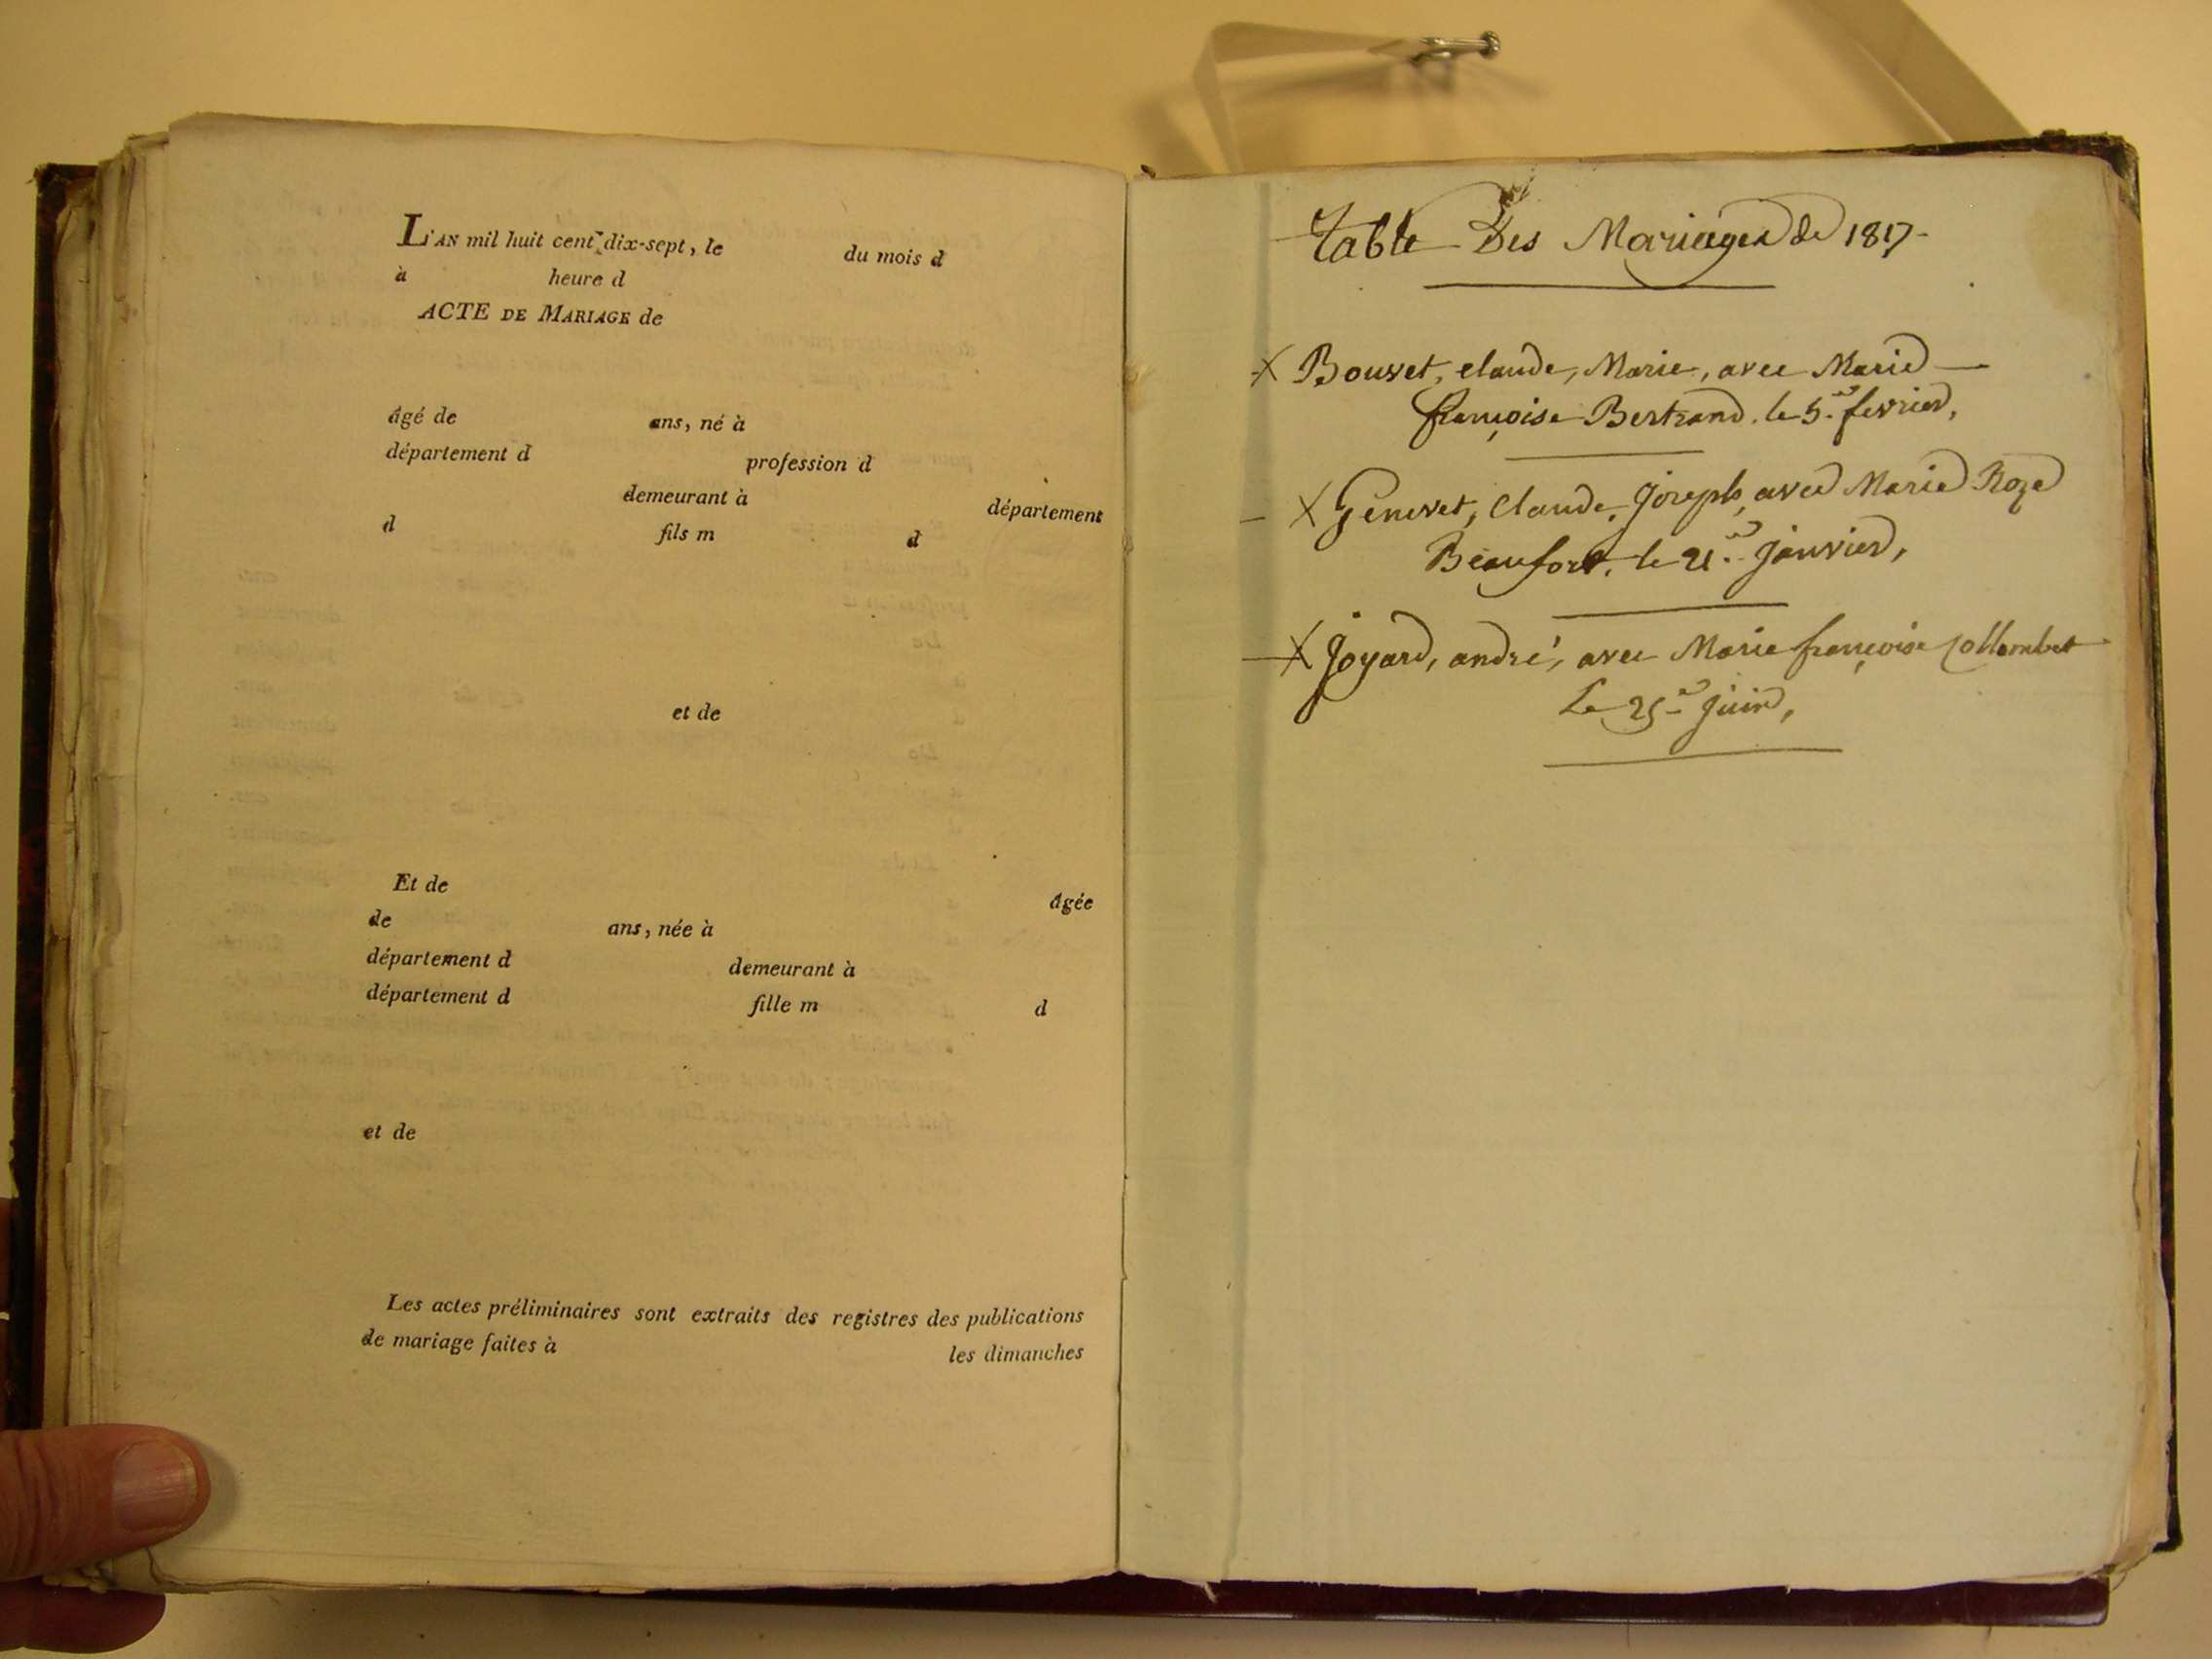 L'AN mil huit cent dix-sept, le du mois d
à heure d
ACTE DE MARIAGE de
âgé de ans, né à
département d profession d
demeurant à département
d fils m d
et de
Et de âgée
de ans, née à
département d demeurant à
département d fille m d
et de
Les actes préliminaires sont extraits des registres des publications
de mariage faites à les dimanches
Table Des Mariages de 1817
X Bouvet, claude, Marie, avec Marie
françoise Bertrand. le 5.e fevrier,
X Genevet, Claude, Joseph, avec Marie Roze
Beaufort, le 21.e Janvier,
X Joyard, andré, avec Marie françoise Collombet
Le 25.e Juin,